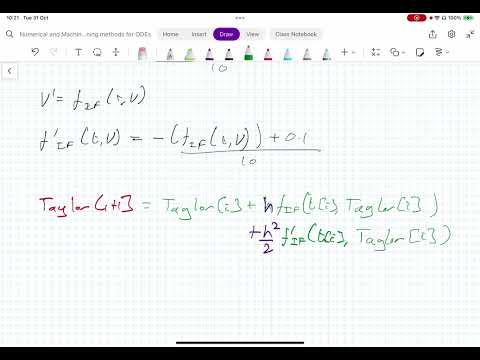 10:21 Tue 31 Oct
Numerical and Machin...ning methods for ODEs
Home Insert Draw View Class Notebook
10
V' = f_IF(t,V)
f'_IF(t,V) = -(f_IF(t,V)) + 0.1
10
Taylor[i+1] = Taylor[i] + h f_IF(t[i], Taylor[i])
+ h²/2 f'_IF(t[i], Taylor[i])